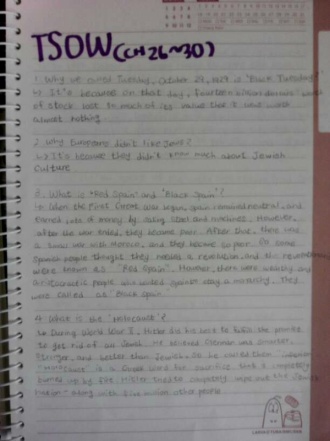 TSOW (CH 26~30)
1. Why we called Tuesday, October 29, 1929 is "Black Tuesday"?
↳ It's because on that day, fourteen billion dollars' worth
of stock lost so much of its value that it was worth
almost nothing.
2. Why Europeans didn't like Jews?
↳ It's because they didn't know much about Jewish
culture
3. What is "Red Spain" and "Black Spain"?
↳ When the First World War begun, Spain remained neutral, and
earned lots of money by selling steel and machines. However,
after the war ended, they became poor. After this, there was
a small war with Morocco, and they became so poor. So some
Spanish people thought they needs a revolution, and
were known as "Red Spain". However, there were wealthy and
aristocratic people who wanted Spain stay a monarchy. They
were called as Black Spain
4. What is the "Holocaust"?
↳ During World War II, Hitler did his best to keep the promise
to get rid of all Jewish. He believed German was smarter,
stronger, and better than Jewish. So he called them
"Holocaust" is a Greek word for sacrifice that is completely
burned up by fire. Hitler completely wipe out the
along with five million other people.